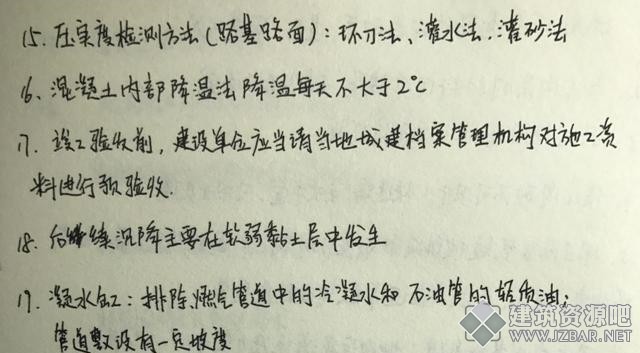 15. 压实度检测方法(路基路面): 环刀法、灌水法、灌砂法
16、混凝土内部降温法降温每天不大于2℃
17. 竣工验收前, 建设单位应当请当地城建档案管理机构对施工资
料进行预验收.
18. 后继续沉降主要在软弱黏土层中发生
19. 凝水缸: 排除燃气管道中的冷凝水和石油管的轻质油;
管道敷设有一定坡度
建筑资源吧
WWW.JZBAR.NET